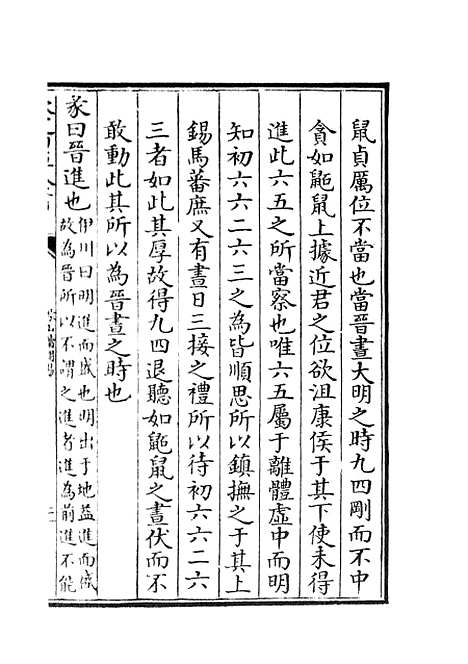 鼠貞厲位不當也當晉晝大明之時九四剛而不中
貪如鼫鼠上據近君之位欲沮康侯于其下使未得
進此六五之所當察也唯六五屬于離體虛中而明
知初六六二六三之為皆順思所以鎮撫之于其上
錫馬蕃庶又有晝日三接之禮所以待初六六二六
三者如此其厚故得九四退聽如鼫鼠之晝伏而不
敢動此其所以為晉晝之時也
彖曰晉進也伊川曰明進而盛也明出于地益進而盛
故為晉所以不謂之進者進為前進不能